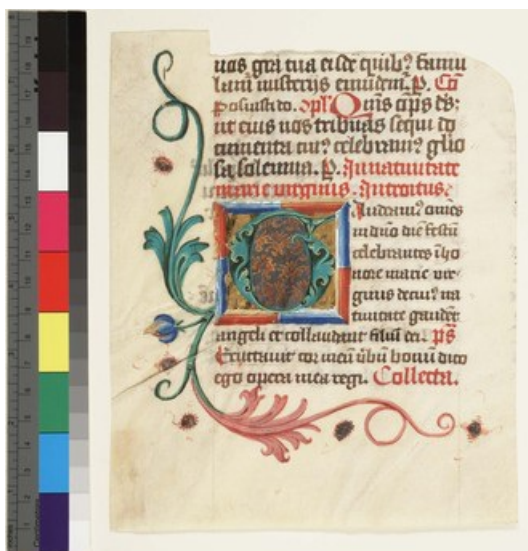 nos gra tua eisdē quibꝫ famu
lant misterijs emūdem. P. Cō
Posuisti do. Cōpl' Quis oīps dꝫ:
ut eius nos tribuas sequi do
cumenta cuiꝰ celebramꝰ glio
sa solemnia. P. In natiuitate
marie virginis. Introitus.
Gaudeamꝰ omnes
in dño diē festū
celebrantes ī ho
nore marie vir
ginis de cuiꝰ na
tiuitate gaudēt
angeli et collaudant filiū dei. ps
Eructauit cor meū ūbū bonū dico
ego opera mea regi. Collecta.